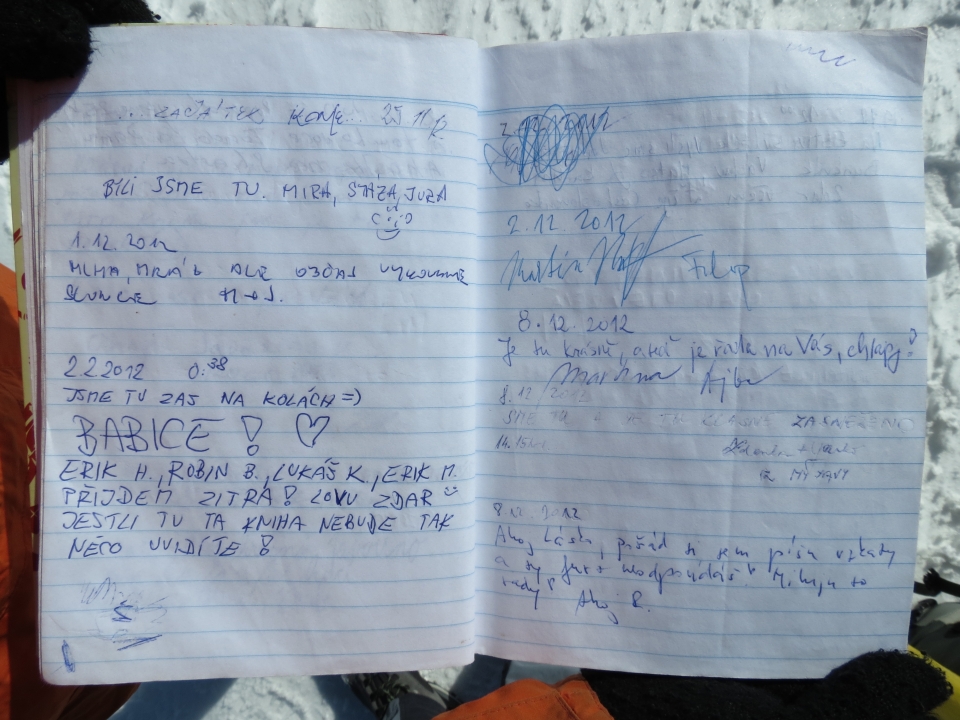 ... ZAČÁTEK KONE... 25 11 12
BYLI JSME TU. MIRA, STÁZA, JURA
1.12.2012
MLHA, MRÁZ ALE OBČAS VYKOUKNE
SLUNCE
2 2 2012 0:38
JSME TU ZAS NA KOLÁCH =)
BABICE ! ♡
ERIK H., ROBIN B., LUKÁŠ K., ERIK M.
PŘIJDEM ZITRA! LOVU ZDAR
JESTLI TU TA KNIHA NEBUDE TAK
NĚCO UVIDÍTE !
2.12 2012
Martin Filip
8.12.2012
Je tu krásně, a je řada na Vás, chlapy!
Martina
8.12 2012
JSME TU A JE TU ZASNĚŽENO
14.15
8 12. 2012
Ahoj Lásko, pořád si sem píšu vzkazy
a ty furt neodpovídáš. Miluju to
tady! Ahoj R.